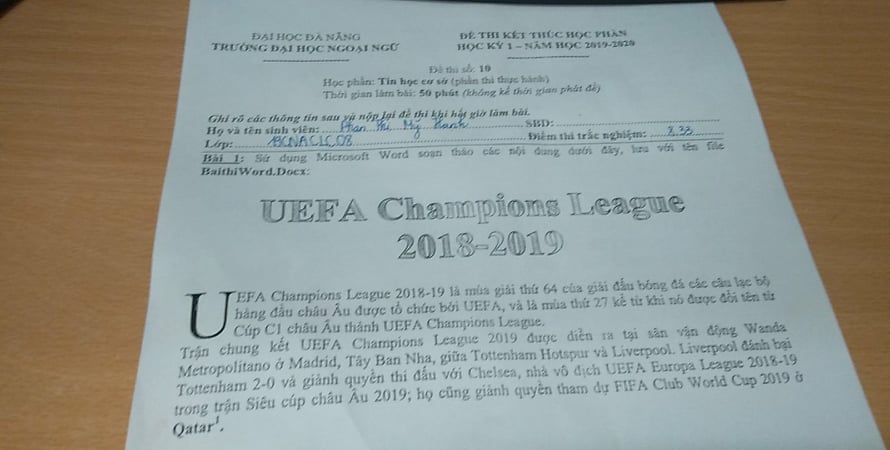 ĐẠI HỌC ĐÀ NẴNG
TRƯỜNG ĐẠI HỌC NGOẠI NGỮ
ĐỀ THI KẾT THÚC HỌC PHẦN
HỌC KỲ 1 – NĂM HỌC 2019-2020
Đề thi số: 10
Học phần: Tin học cơ sở (phần thi thực hành)
Thời gian làm bài: 50 phút (không kể thời gian phát đề)
Ghi rõ các thông tin sau và nộp lại đề thi khi hết giờ làm bài.
Họ và tên sinh viên: Phan Thị Mỹ Hạnh SBD:
Lớp: 19CNACLC08 Điểm thi trắc nghiệm: 8,33
Bài 1: Sử dụng Microsoft Word soạn thảo các nội dung dưới đây, lưu với tên file
BaithiWord.Docx:
UEFA Champions League
2018-2019
UEFA Champions League 2018-19 là mùa giải thứ 64 của giải đấu bóng đá các câu lạc bộ
hàng đầu châu Âu được tổ chức bởi UEFA, và là mùa thứ 27 kể từ khi nó được đổi tên từ
Cúp C1 châu Âu thành UEFA Champions League.
Trận chung kết UEFA Champions League 2019 được diễn ra tại sân vận động Wanda
Metropolitano ở Madrid, Tây Ban Nha, giữa Tottenham Hotspur và Liverpool. Liverpool đánh bại
Tottenham 2-0 và giành quyền thi đấu với Chelsea, nhà vô địch UEFA Europa League 2018-19
trong trận Siêu cúp châu Âu 2019; họ cũng giành quyền tham dự FIFA Club World Cup 2019 ở
Qatar¹.